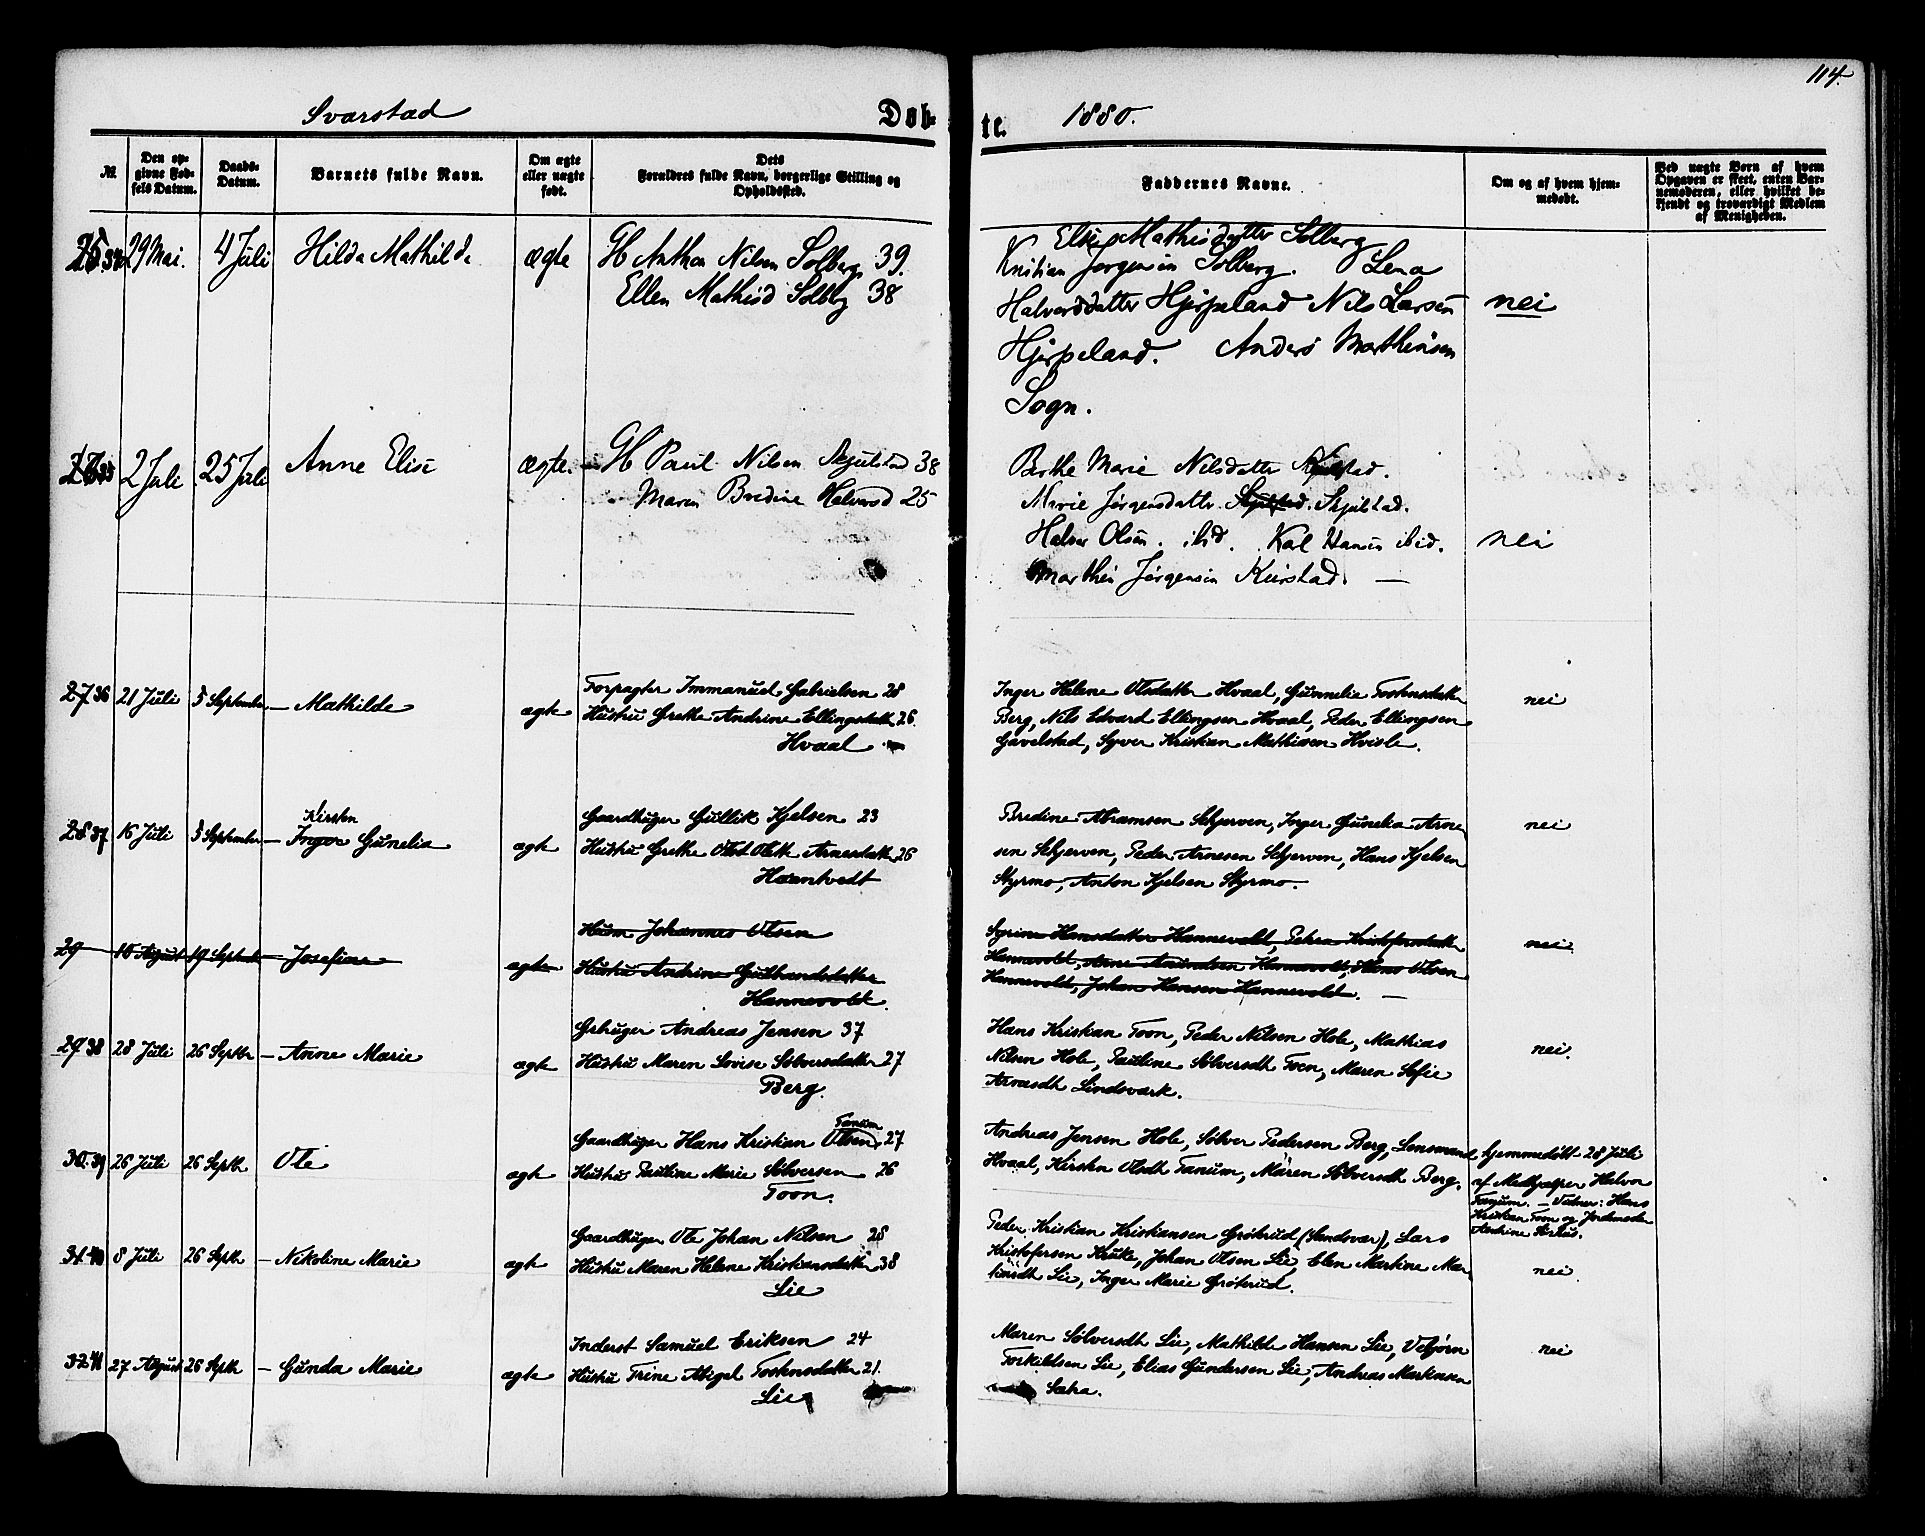 114.
Svarstad Døb- te. 1880.
№
Den op-
givne Fød-
sels Datum.
Daabs-
Datum.
Barnets fulde Navn.
Om ægte
eller uægte
født.
Dets
Forældres fulde Navn, borgerlige Stilling og
Opholdssted.
Faddernes Navne.
Om og af hvem hjem-
medøbt.
Ved uægte Børn af hvem
Opgaven er skeet, enten Bar-
nemoderen, eller hvilket be-
kjendt og troværdigt Medlem
af Menigheden.
25 34 29 Mai. 4 Juli Hilda Mathilde ægte
Anthon Nilsen Solberg 39.
Ellen Mathisd Solbg 38
Mathisdatter Solberg
Kristian Jørgensen Solberg. Lena
Halvorsdatter Hjerpeland Nils Larsen
Hjerpeland. Anders Marthinsen
Sogn.
nei
2 Juli 25 Juli Anne Elise ægte.
Paul Nilsen Skjulstad 38
Maren Bredine Halvorsd 25
Berthe Marie Nilsdatter
Marie Jørgensdatter Skjulstad.
Halvor Olsen. ibid. Karl Hansen ibid.
Marthin Jørgensen Keirstad. —
nei
27 36 21 Juli 5 September — Mathilde ægte
Forpagter Immanuel Gabrielsen 28
Hustru Grethe Andrine Ellingsdatter 26.
Hvaal
Inger Helene Olsdatter Hvaal, Gunnelia Tostensdatter
Berg, Nils Edvard Ellingsen Hvaal, Peder Ellingsen
Gavelstad, Syver Kristian Mathiasen Hvisle.
nei
28 37 16 Juli 5 September — Kirsten
Inger Gunelia ægte
Gaardbruger Gullik Kjelsen 23
Hustru Grethe Arnesdatter 26
Haontvedt
Bredine Abramsen Schjerven, Inger Gunelia Arne-
sen Schjerven, Peder Arnesen Schjerven, Hans Kjelsen
Styrmo, Anton Kjelsen Styrmo.
nei
29 15 August 19 September — Josefine ægte
Husm Johannes Olsen
Hustru Andrine Gulbrandsdatter
Hannevoldt.
Syrine Hansdatter Hannevoldt, Petrea Kristofersdatter
Hannevoldt, Arne Amundsen Hannevoldt, Hans Olsen
Hannevoldt, Johan Hansen Hannevoldt. —
nei
29 38 28 Juli 26 Septbr — Anne Marie ægte
Gbruger Andreas Jensen 37
Hustru Maren Lovise Sølversdatter 27
Berg.
Hans Kristian Toon, Peder Nilsen Hole, Mathias
Nilsen Hole, Pauline Sølversdt Toen, Maren Sofie
Arnesdt Lindsværk.
nei.
30. 39 26 Juli 26 Septb Ole ægte
Tanum
Gaardbruger Hans Kristian Olsen 27
Hustru Pauline Marie Sølversen 26
Toon.
Andreas Jensen Hole, Sølver Pedersen Berg, Lensmand
Hvaal, Kirsten Olsdt Tanum, Maren Sølversdt Berg.
hjemmedøbt 28 Juli
af Medhjælper Halvor
Tanum. — Vidner: Hans
Kristian Toon og Jordemoder
Andrine Sirhus.
31 40 8 Juli 26 Septb — Nikoline Marie ægte
Gaardbruger Ole Johan Nilsen 28
Hustru Maren Helene Kristiansdatter 38
Lie
Peder Kristian Kristiansen Grøterud (Sandsvær), Lars
Kristofersen Kruke, Johan Olsen Lie, Elen Martine Mar-
tinsdt Lie, Inger Marie Grøterud.
nei
32 41 27 August 26 Septb — Gunda Marie ægte
Inderst Samuel Eriksen 24
Hustru Trine Abigel Tostensdatter 21.
Lie
Maren Sølversdt Lie, Mathilde Hansen Lie, Vebjørn
Torkildsen Lie, Elias Gundersen Lie, Andreas Markusen
Satra.
nei